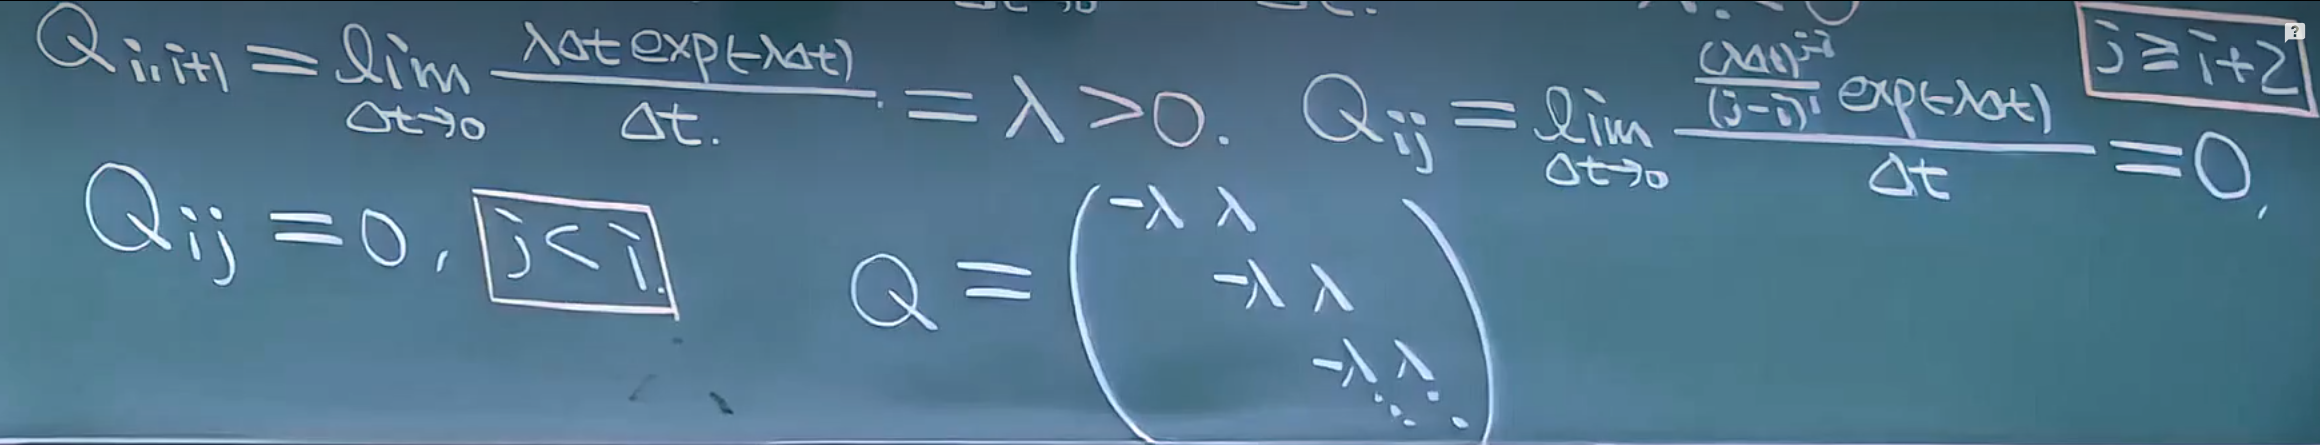 Q_{i,i+1} = lim_{Δt→0} λΔt exp(-λΔt) / Δt. = λ > 0. Q_{ij} = lim_{Δt→0} ((λΔt)^{j-i} / (j-i)!) exp(-λΔt) / Δt = 0, j ≥ i+2
Q_{ij} = 0, j < i.
Q = ( -λ λ
-λ λ
-λ λ
⋱ ⋱ )